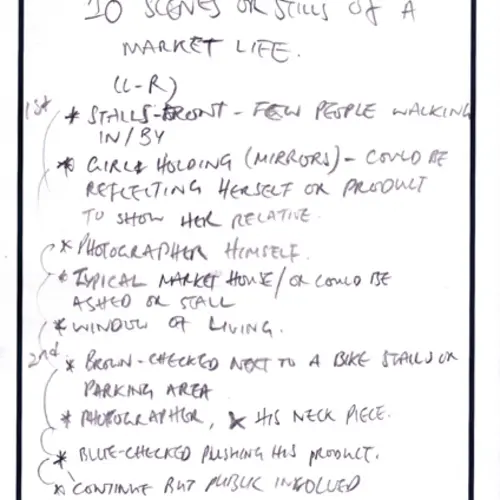 10 SCENES OR STILLS OF A
MARKET LIFE.
(L-R)
1st * STALLS-FRONT - FEW PEOPLE WALKING
IN/BY
* GIRLS HOLDING (MIRRORS) - COULD BE
REFLECTING HERSELF OR PRODUCT
TO SHOW HER RELATIVE.
* PHOTOGRAPHER HIMSELF.
* TYPICAL MARKET HOUSE/OR COULD BE
ASHED OR STALL
* WINDOW OF LIVING.
2nd * BROWN-CHECKED NEXT TO A BIKE STALLS OR
PARKING AREA
* PHOTOGRAPHER, X HIS NECK PIECE.
* BLUE-CHECKED PUSHING HIS PRODUCT.
* CONTINUE BUT PUBLIC INVOLVED